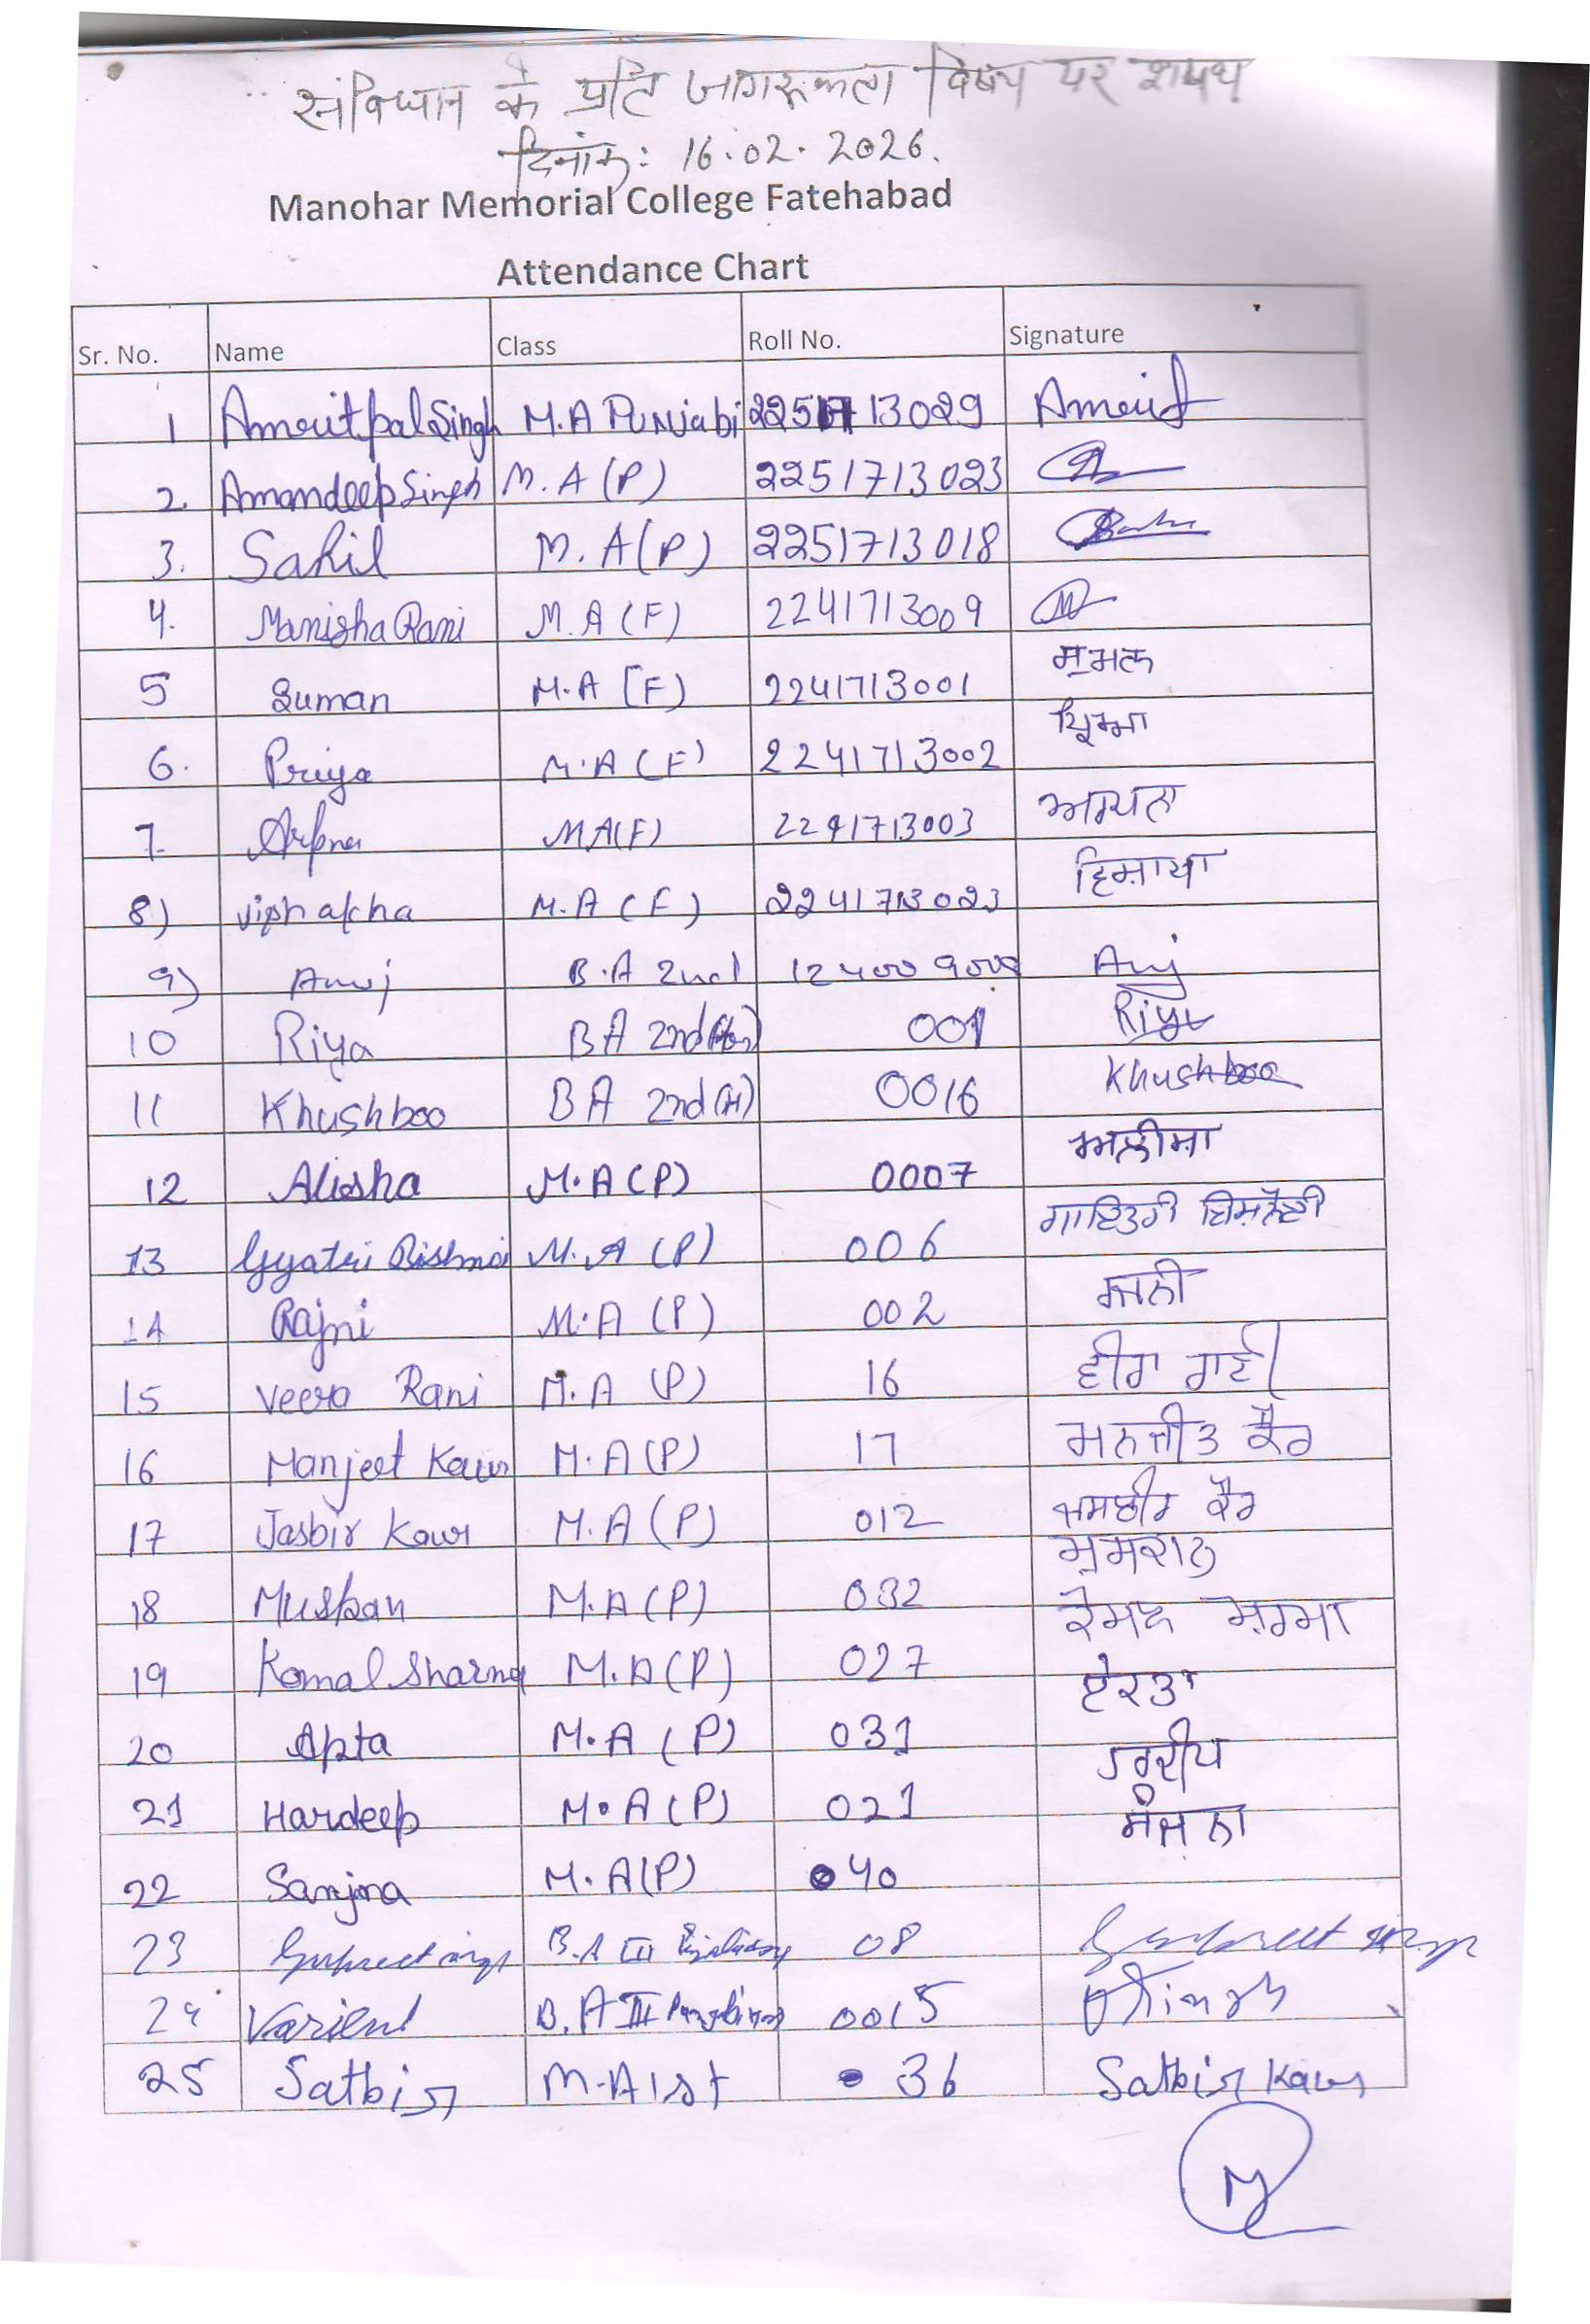 संविधान के प्रति जागरूकता विषय पर शपथ
दिनांक: 16.02.2026.
Manohar Memorial College Fatehabad
Attendance Chart
Sr. No. Name Class Roll No. Signature
1 Amritpal Singh M.A Punjabi 2251713029 Amrit
2. Amandeep Singh M.A (P) 2251713023
3. Sahil M.A (P) 2251713018
4. Manisha Rani M.A (F) 2241713009
5 Suman M.A (F) 2241713001 ਸੁਮਨ
6. Priya M.A (F) 2241713002 ਪ੍ਰਿਆ
7. Arpna M.A (F) 2241713003 ਅਰਪਨਾ
8) M.A (F) 2241713023
9) Anuj B.A 2nd Anuj
10 Riya BA 2nd 001 Riya
11 Khushboo BA 2nd (H) 0016 Khushboo
12 Alisha M.A (P) 0007 ਅਲੀਸ਼ਾ
13 Gyatri Bishnoi M.A (P) 006 ਗਾਇਤਰੀ ਬਿਸ਼ਨੋਈ
14 Rajni M.A (P) 002 ਰਜਨੀ
15 Veera Rani M.A (P) 16 ਵੀਰਾ ਰਾਣੀ
16 Manjeet Kaur M.A (P) 17 ਮਨਜੀਤ ਕੌਰ
17 Jasbir Kaur M.A (P) 012 ਜਸਬੀਰ ਕੌਰ
18 Muskan M.A (P) 032 ਮੁਸਕਾਨ
19 Komal Sharma M.A (P) 027 ਕੋਮਲ ਸ਼ਰਮਾ
20 M.A (P) 031
21 Hardeep M.A (P) 021 ਹਰਦੀਪ
22 Sanjna M.A (P) 040 ਸੰਜਨਾ
23 Gurpreet singh B.A III 08 Gurpreet singh
24 B.A III 0015
25 Satbir M.A 1st 36 Satbir Kaur